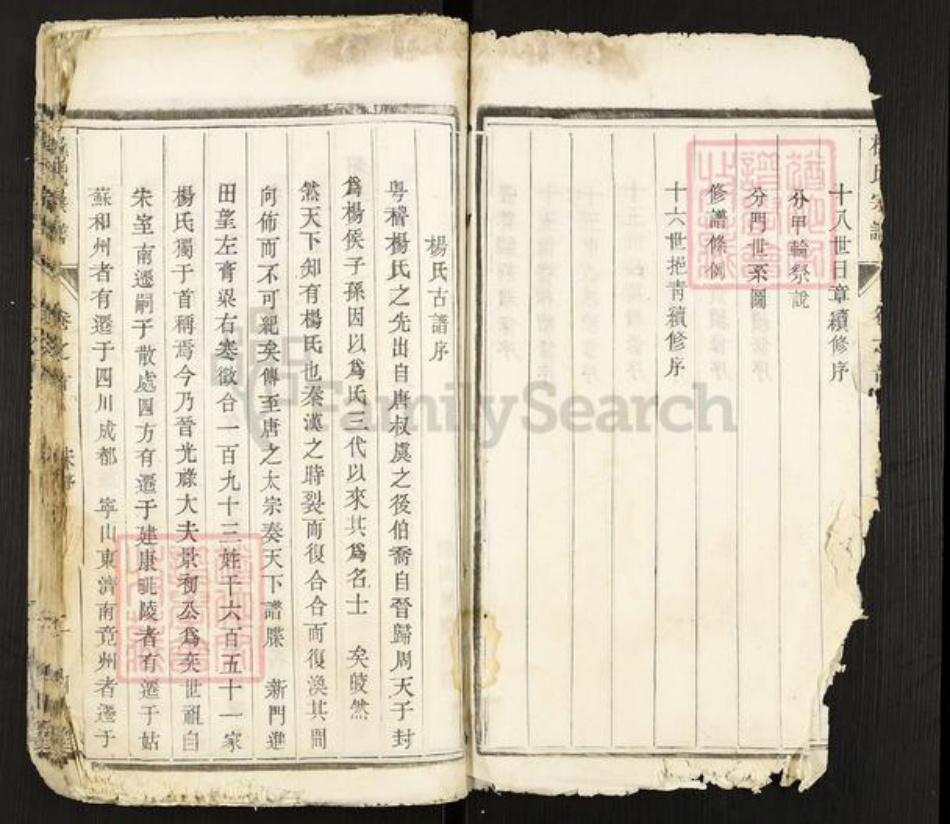 十八世日章續修序
分甲輪祭說
分門世系圖
修譜條例
十六世挹青續修序
楊氏古譜序
粤稽楊氏之先出自唐叔虞之後伯喬自晉歸周天子封
為楊侯子孫因以為氏三代以來其為名士 矣皎然
然天下知有楊氏也秦漢之時裂而復合合而復渙其間
向佈而不可紀矣傳至唐之太宗奏天下譜牒 新門進
田望左膏梁右寒微合一百九十三姓千六百五十一家
楊氏獨于首稱焉今乃晉光祿大夫景初公為矣世祖自
宋室南遷嗣子散處四方有遷于建康毗陵者有遷于姑
蘇和州者有遷于四川成都 寧山東濟南竟州者遷于
FamilySearch